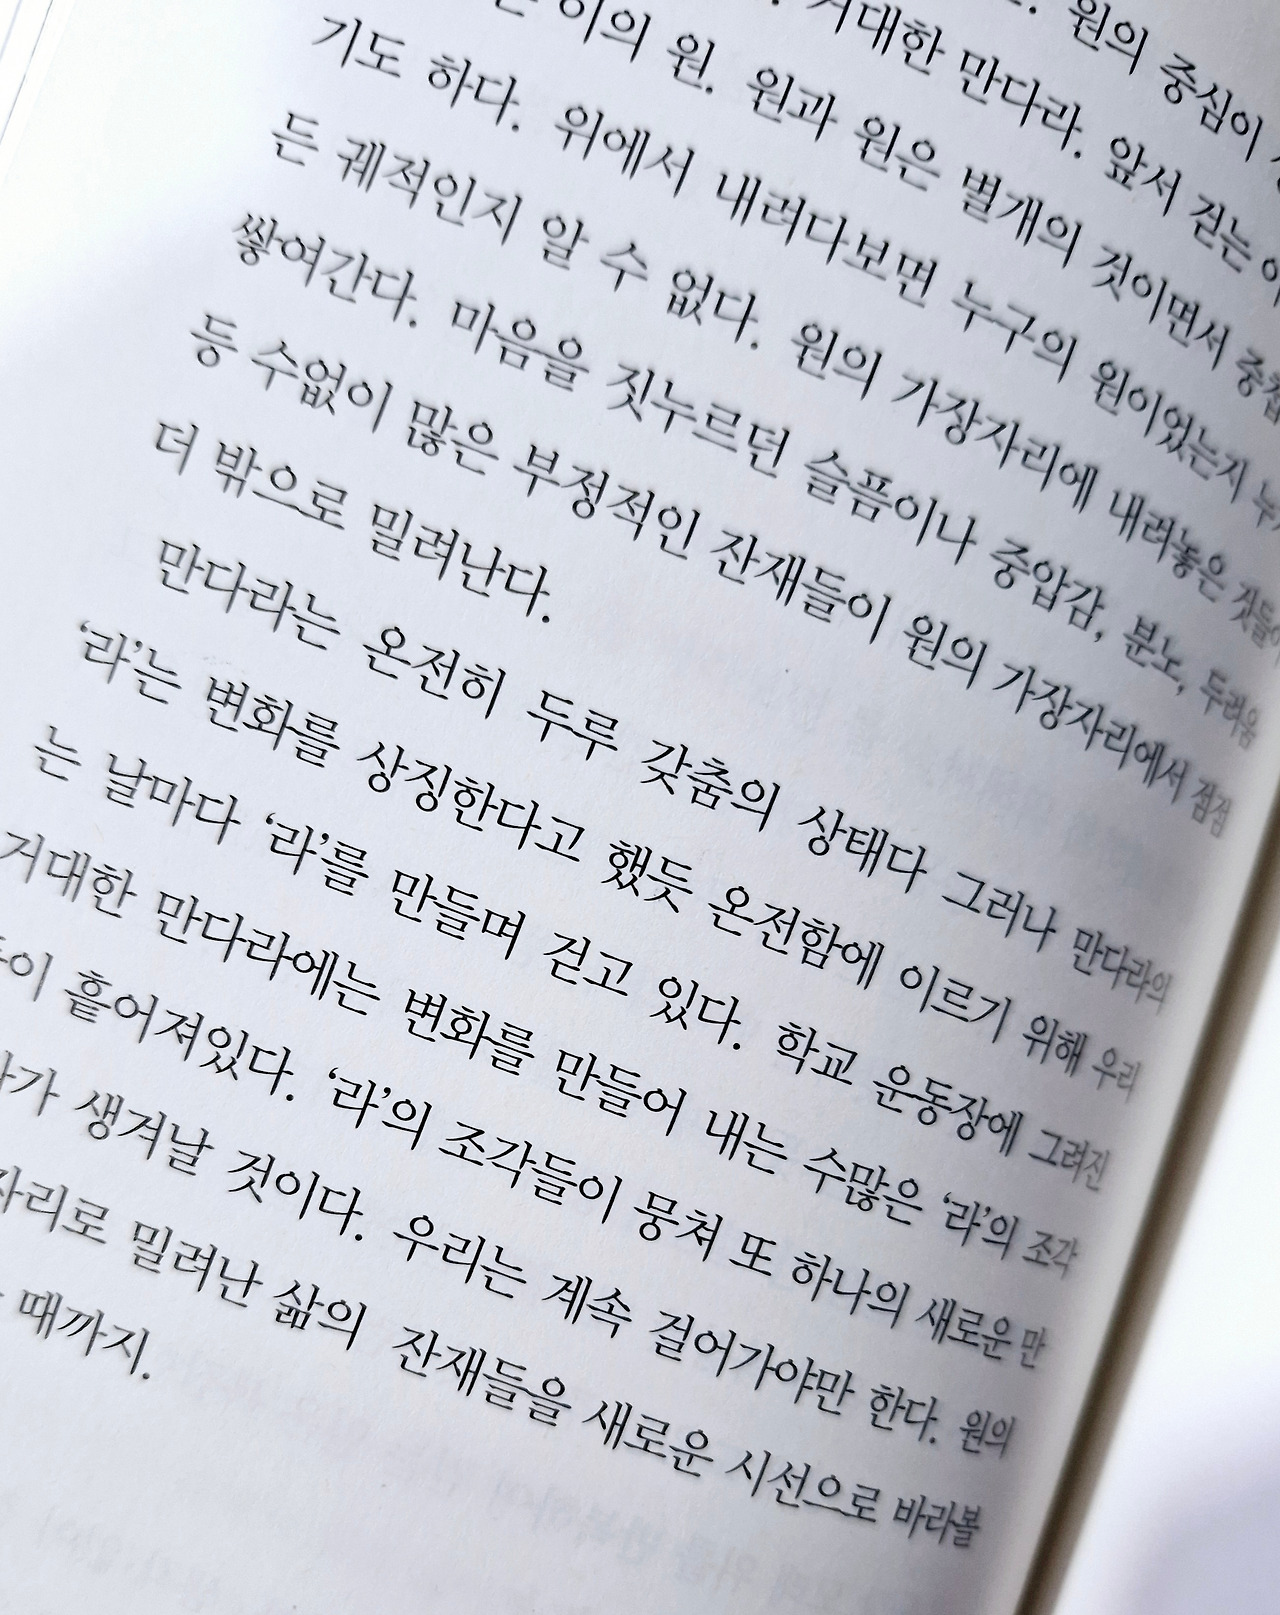 원의 중심이
거대한 만다라. 앞서 걷는
이의 원. 원과 원은 별개의 것이면서
기도 하다. 위에서 내려다보면 누구의 원이었는지
든 궤적인지 알 수 없다. 원의 가장자리에 내려놓은 것들이
쌓여간다. 마음을 짓누르던 슬픔이나 중압감, 분노, 두려움
등 수없이 많은 부정적인 잔재들이 원의 가장자리에서 점점
더 밖으로 밀려난다.
만다라는 온전히 두루 갖춤의 상태다 그러나 만다라의
‘라’는 변화를 상징한다고 했듯 온전함에 이르기 위해 우리
는 날마다 ‘라’를 만들며 걷고 있다. 학교 운동장에 그려진
거대한 만다라에는 변화를 만들어 내는 수많은 ‘라’의 조각
이 흩어져있다. ‘라’의 조각들이 뭉쳐 또 하나의 새로운 만
가 생겨날 것이다. 우리는 계속 걸어가야만 한다. 원의
자리로 밀려난 삶의 잔재들을 새로운 시선으로 바라볼
때까지.